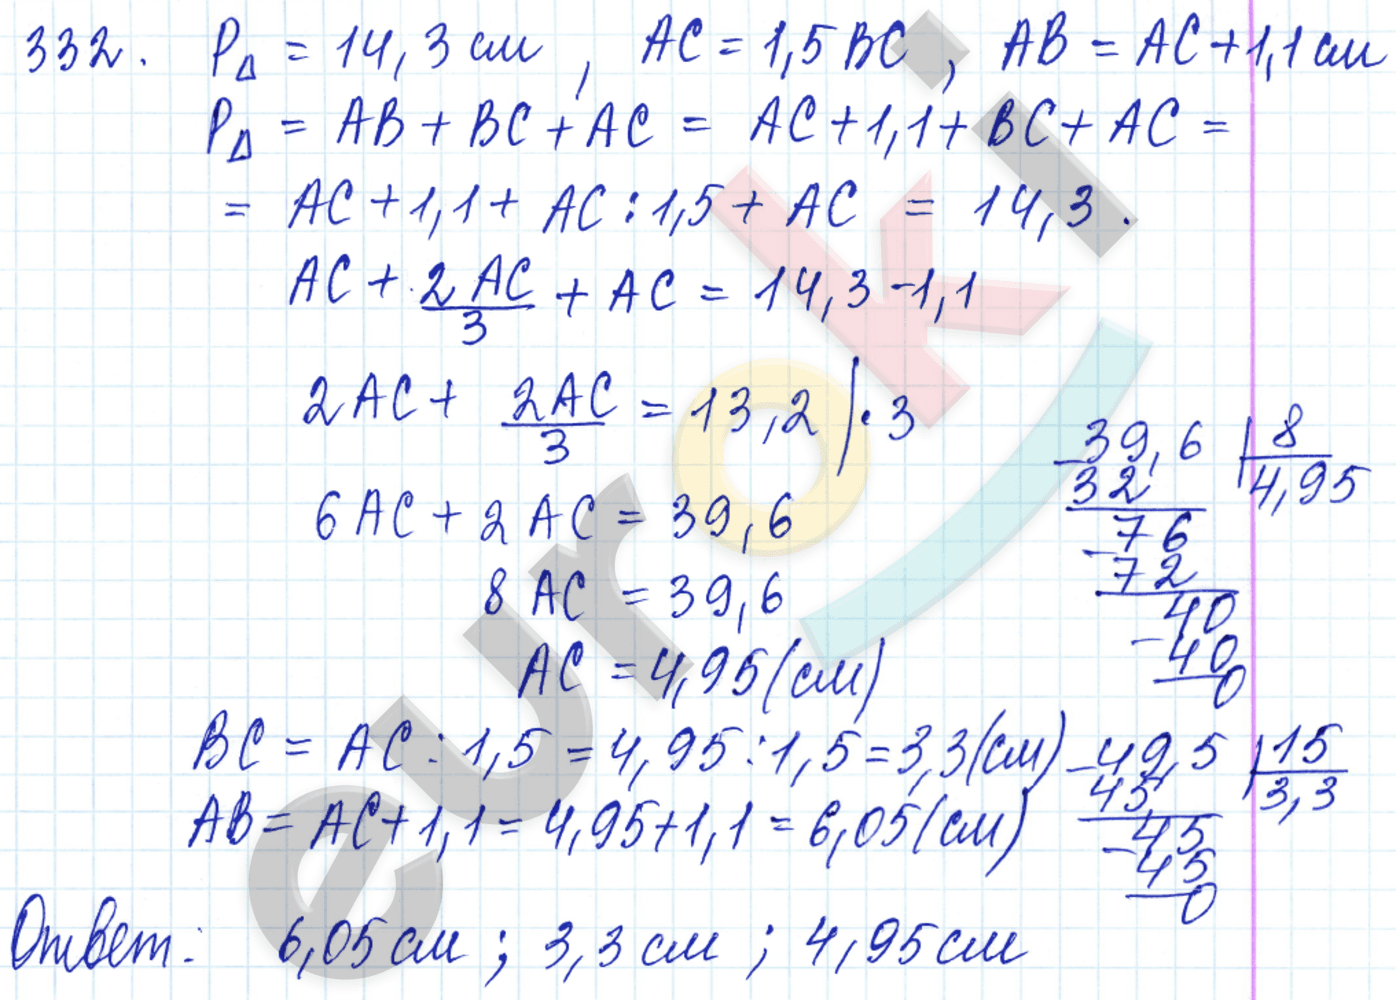 332. P△ = 14,3 см, AC = 1,5 BC, AB = AC + 1,1 см
P△ = AB + BC + AC = AC + 1,1 + BC + AC =
= AC + 1,1 + AC : 1,5 + AC = 14,3.
AC + 2AC/3 + AC = 14,3 - 1,1
2AC + 2AC/3 = 13,2 | · 3
6AC + 2AC = 39,6
8AC = 39,6
AC = 4,95 (см)
39,6 | 8
32 | 4,95
76
72
40
40
0
BC = AC : 1,5 = 4,95 : 1,5 = 3,3 (см)
AB = AC + 1,1 = 4,95 + 1,1 = 6,05 (см)
49,5 | 15
45 | 3,3
45
45
0
Ответ: 6,05 см; 3,3 см; 4,95 см
euroki